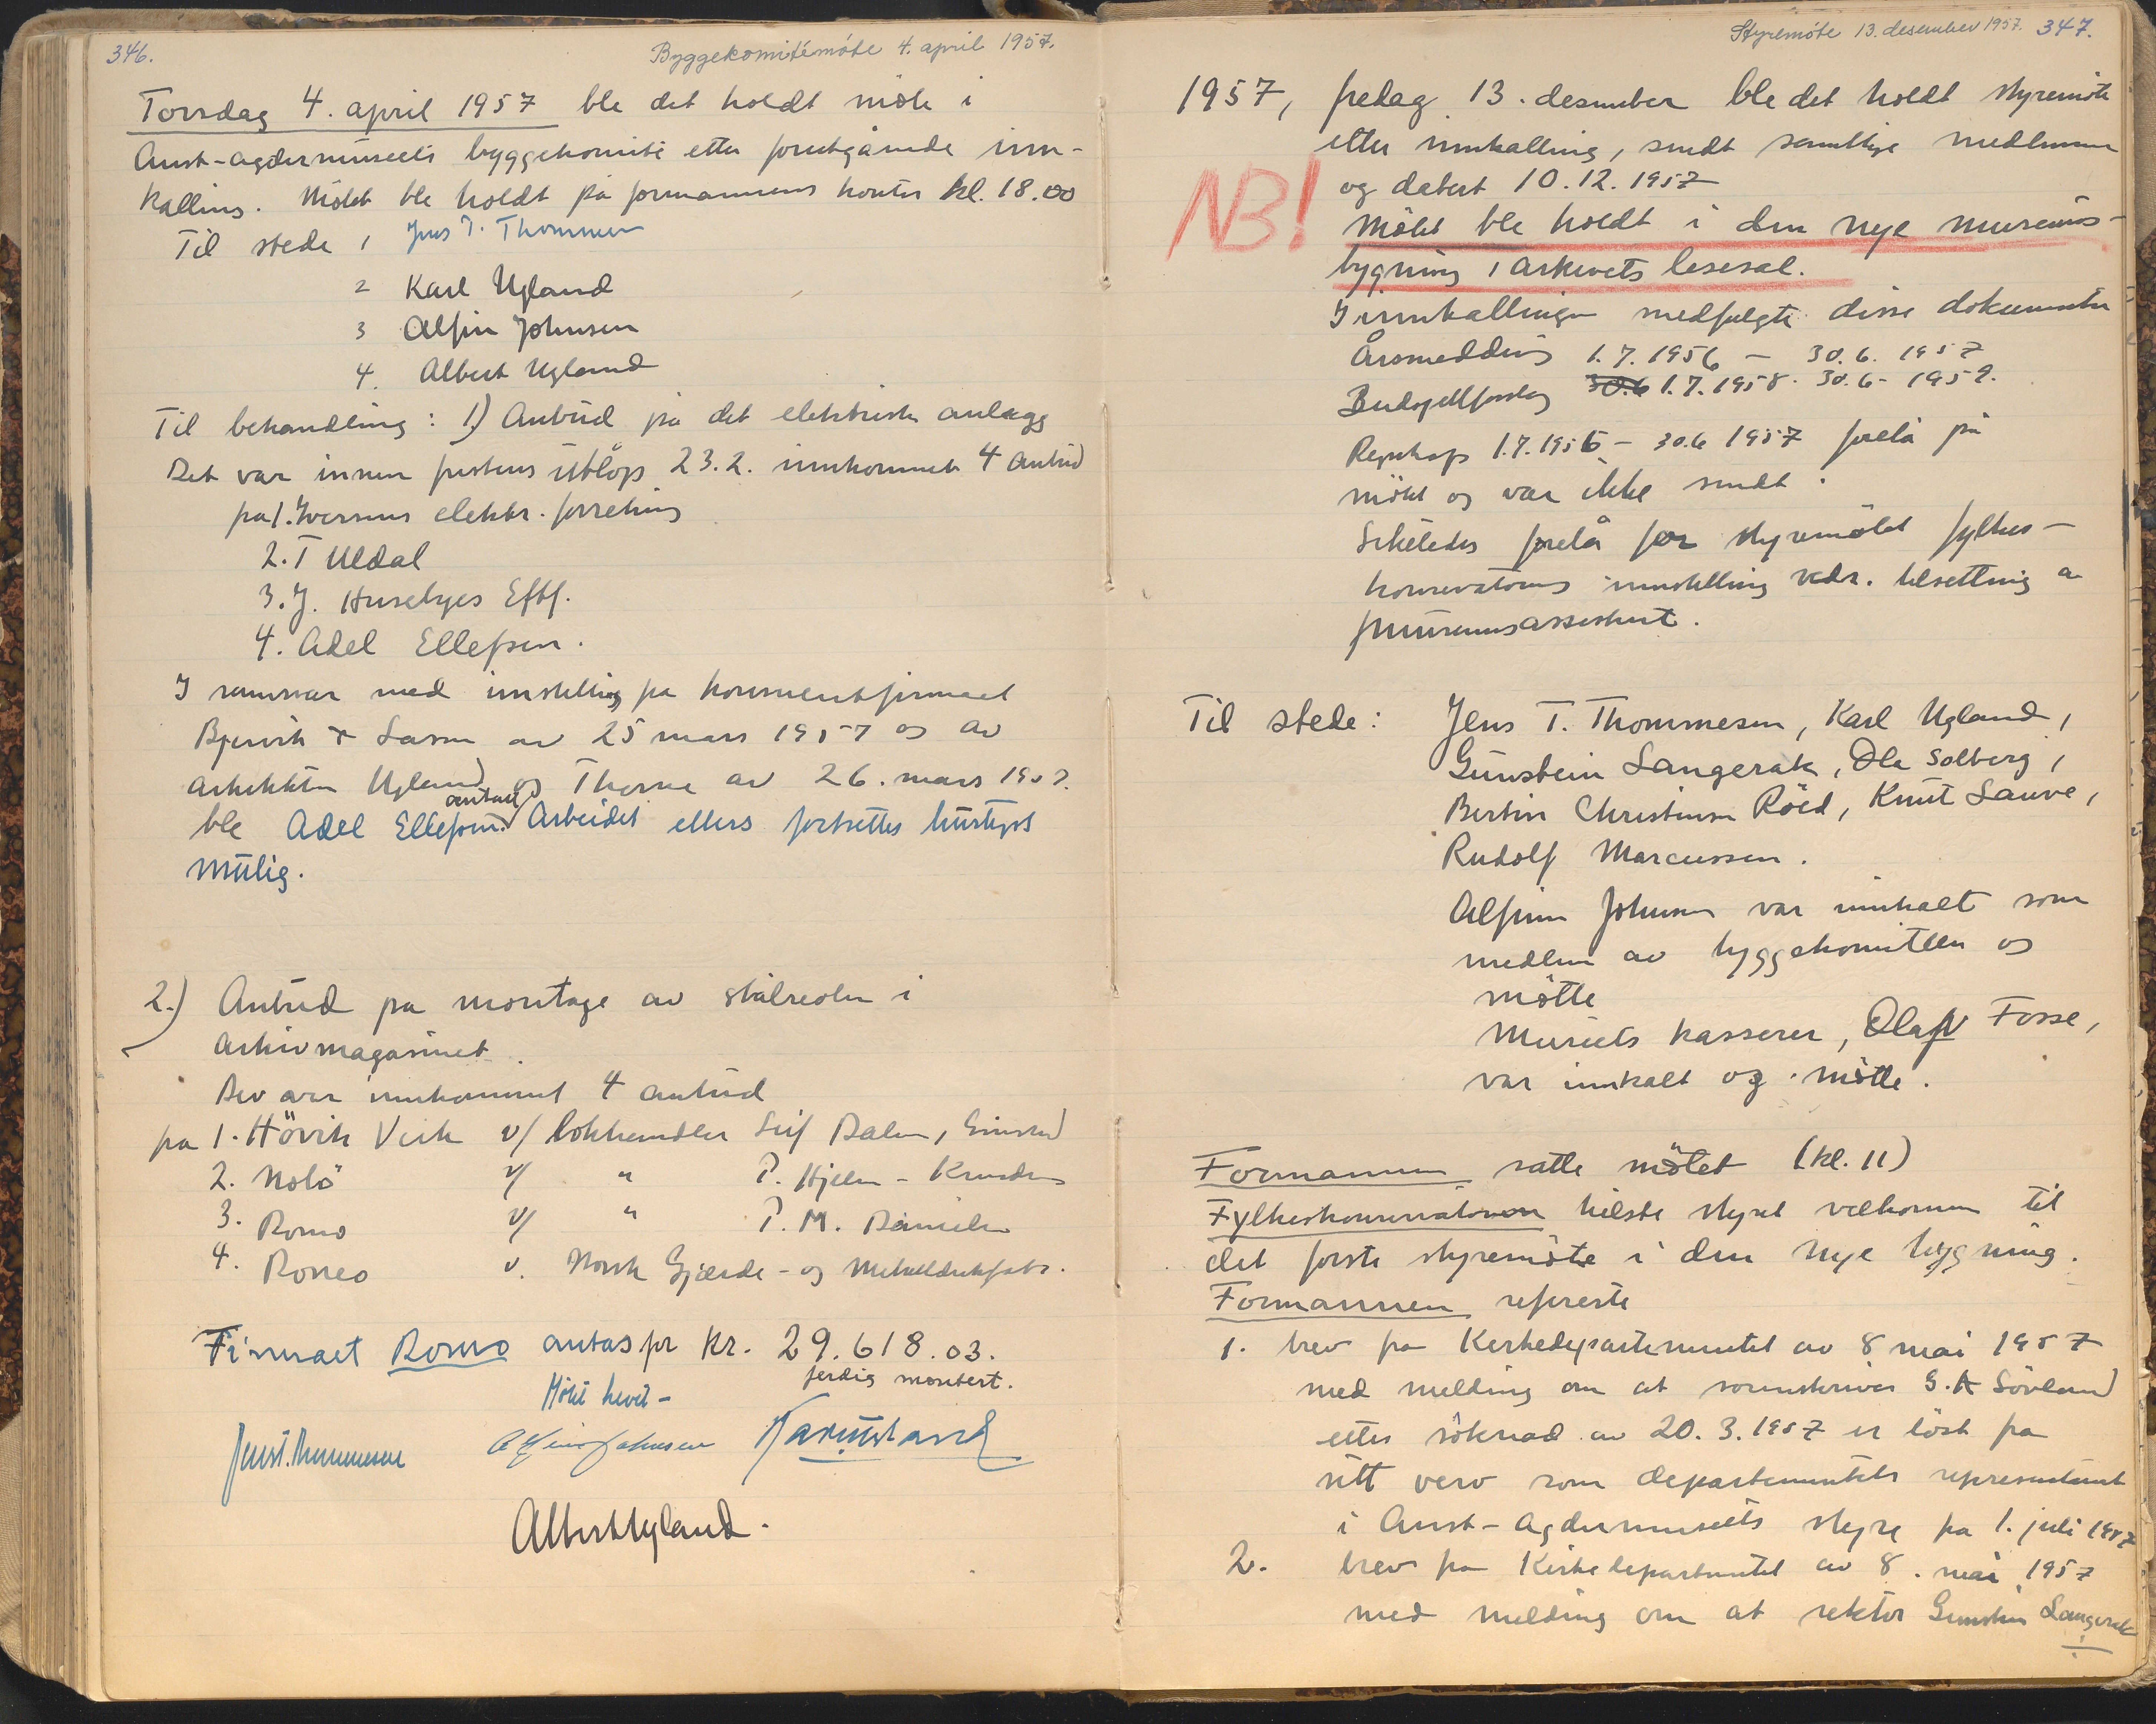 346.
Byggekomitémöte 4. april 1957.
Torsdag 4. april 1957 ble det holdt möte i
Aust-Agdermuseets byggekomité etter forutgående inn-
kalling. Mötet ble holdt på formannens kontor kl. 18.00
Til stede 1 Jens T. Thommesen
2 Karl Ugland
3 Alfin Johnsen
4. Albert Ugland
Til behandling: 1.) Anbud på det elektriske anlegg
Det var innen fristens utlöps 23.2. innkommet 4 anbud
fra 1. Iversens elektr. forretning
2. T Uldal
3. J. Husebyes Eftf.
4. Adel Ellefsen.
I samsvar med innstilling fra konsulentfirmaet
Bjervik & Larsen av 25 mars 1957 og av
arkitekten Ugland og Thorne av 26. mars 1957.
ble Adel Ellefsen antatt. Arbeidet ellers fortsettes hurtigst
mulig.
2.) Anbud på montage av stålreoler i
Arkivmagasinet.
Det var innkommet 4 anbud
fra 1. Hövik Verk v/ bokhandler Leif Dalen, Grimstad
2. Nolö v/ " P. Hjelm - Kr.sand
3. Romo v/ " P. M. Danielsen
4. Roneo v. Norsk Gjærde- og Metalldukfabr.
Firmaet Romo antas for kr. 29.618.03.
ferdig montert.
Mötet hevet -
Jens T. Thommesen Alfin Johnsen Karl Ugland
Albert Ugland.
Styremöte 13. desember 1957. 347.
1957, fredag 13. desember ble det holdt styremöte
etter innkalling, sendt samtlige medlemmer
og datert 10.12.1957
NB!
Mötet ble holdt i den nye museums-
bygning i arkivets lesesal.
I innkallingen medfulgte disse dokumenter
Årsmelding 1.7.1956 - 30.6.1957
Budsjettforslag 30.6 1.7.1958. 30.6-1959.
Regnskap 1.7.1956 - 30.6 1957 forelå på
mötet og var ikke sendt.
Likeledes forelå for styremötet fylkes-
konservatorens innstilling vedr. tilsetting a
museumsassistent.
Til stede: Jens T. Thommesen, Karl Ugland,
Gunstein Langerak, Ole Solberg,
Bertin Christensen Röed, Knut Lauve,
Rudolf Marcussen.
Alfinn Johnsen var innkalt som
medlem av byggekomitéen og
mötte
Museets kasserer, Olav Fosse,
var innkalt og mötte.
Formannen satte mötet (kl. 11)
Fylkeskonservatoren hilste styret velkommen til
det förste styremöte i den nye bygning.
Formannen refererte
1. brev fra Kirkedepartementet av 8 mai 1957
med melding om at sorenskriver S. A Sövland
etter söknad av 20.3.1957 er löst fra
sitt verv som departementets representant
i Aust-Agdermuseets styre fra 1. juli 1957
2. brev fra Kirkedepartementet av 8. mai 1957
med melding om at rektor Gunstein Langerak